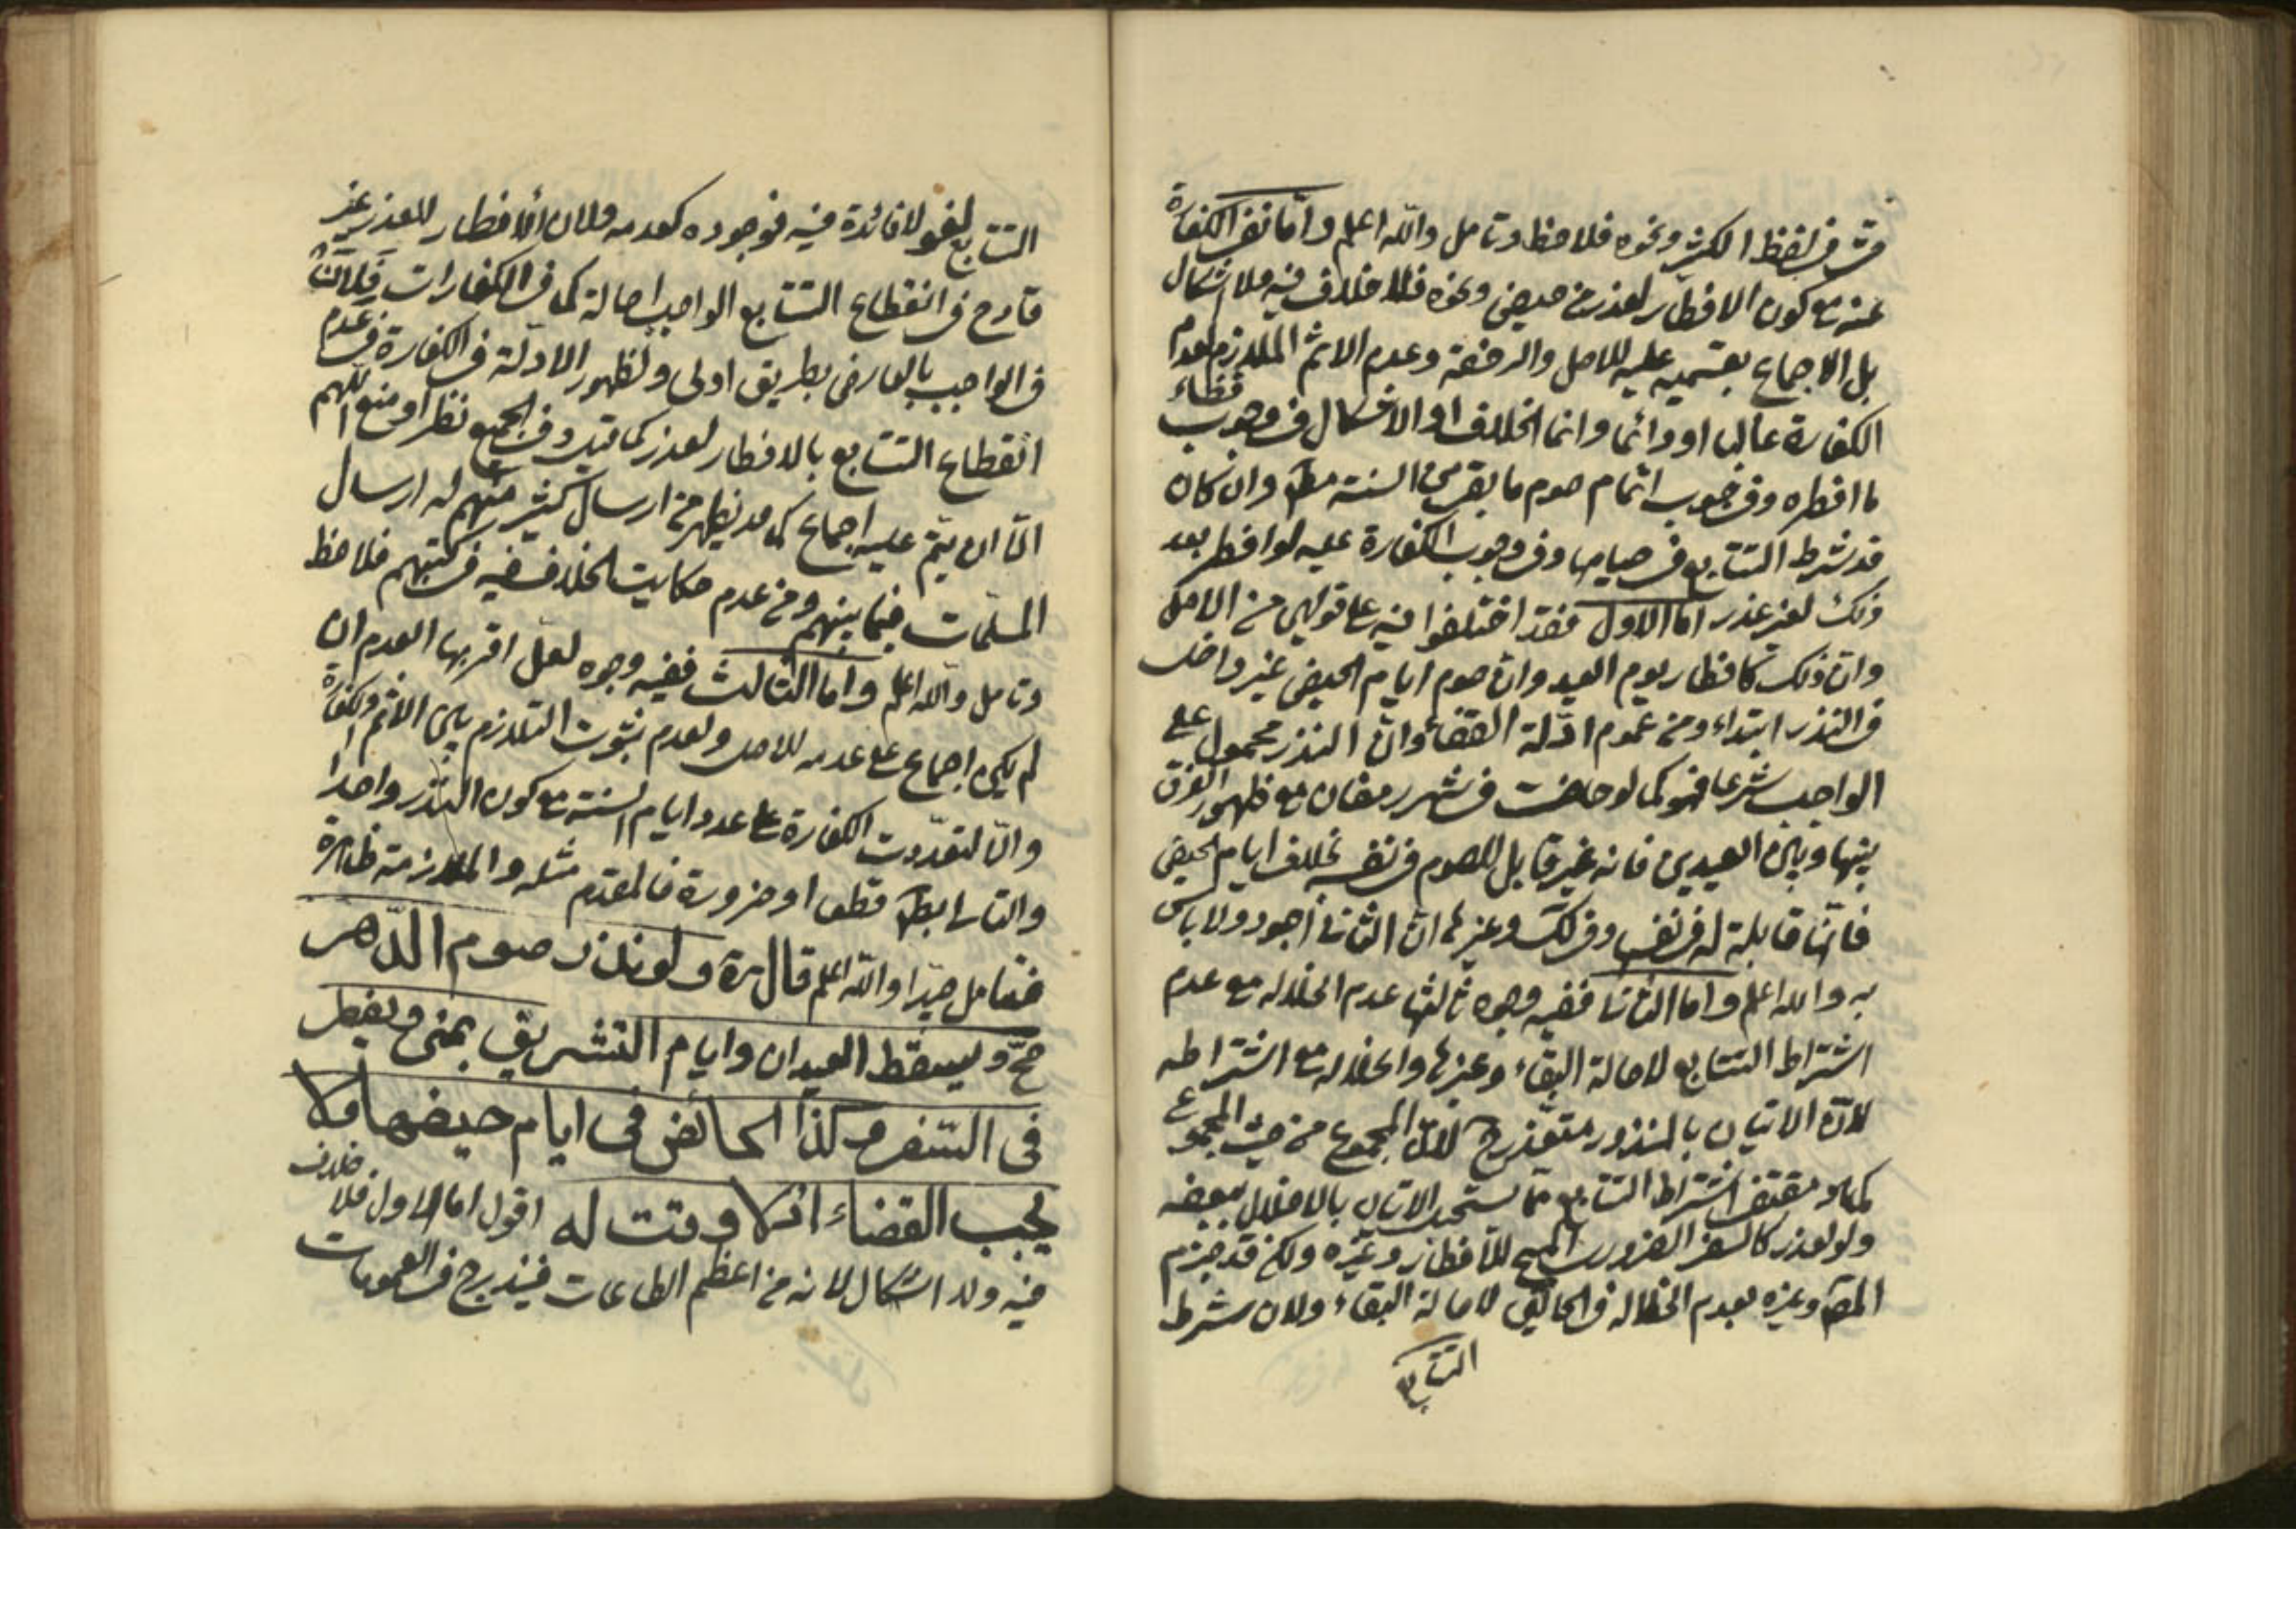 في لفظ الكثير ونحوه فلاحظ وتامل والله اعلم واما نفى الكفارة
عنه مع كون الافطار لعذر من حيض ونحوه فلا خلاف فيه ولا اشكال
بل الاجماع بقسميه عليه للاصل والرخصة وعدم الاثم الملازم لعدم
الكفارة غالبا او دائما وانما الخلاف او الاشكال في وجوب قضاء
ما افطره وفي وجوب اتمام صوم ما بقى من السنة مط وان كان
قد شرط التتابع في صيامها وفي وجوب الكفارة عليه لو افطر بعد
ذلك لغير عذر اما الاول فقد اختلفوا فيه على قولين من الاصل
وان ذلك كافطار يوم العيد وان صوم ايام الحيض غير داخل
في النذر ابتداء ومن عموم ادلة القضاء وان النذر محمول على
الواجب شرعا فهو كما لو حاضت في شهر رمضان مع ظهور الفرق
بينها وبين العيدين فانه غير قابل للصوم في نفسه بخلاف ايام الحيض
فانها قابلة له في نفسها وفي لك وغيرها ان الثاني اجود ولا باس
به والله اعلم واما الثاني ففيه وجوه ثالثها عدم الاخلال مع عدم
اشتراط التتابع لاصالة البقاء وغيرها والاخلال مع اشتراطه
لان الاتيان بالمنذور متعذر ح لان المجموع من حيث المجموع
كما هو مقتضى اشتراط التتابع مما يستحيل الاتيان بالاخلال ببعضه
ولو لعذر كالسفر الضروري المبيح للافطار وغيره ولكن قد جزم
المص وغيره بعدم الاخلال في الحالين لاصالة البقاء ولان شرط
التتابع
التتابع لغو لا فائدة فيه فوجوده كعدمه ولان الافطار للعذر غير
قادح في انقطاع التتابع الواجب اصالة كما في الكفارات فلان
في الواجب بالعارض بطريق اولى ولظهور الادلة في الكفارة في عدم
انقطاع التتابع بالافطار لعذر كما قيل وفي الجميع نظر او منع اللهم
الا ان يتم عليه اجماع كما قد يظهر من ارسال كثير منهم له ارسال
المسلمات فيما بينهم ومن عدم حكايت الخلاف فيه في كتبهم فلاحظ
وتامل والله اعلم واما الثالث ففيه وجوه لعل اقربها العدم ان
لم يكن اجماع على عدمه للاصل ولعدم ثبوت التلازم بين الاثم والكفارة
والا لتعددت الكفارة على عدد ايام السنة مع كون النذر واحدا
والتالى بط قطعا او ضرورة فالمقدم مثله والملازمة ظاهرة
فتامل جيدا والله اعلم قال ره ولو نذر صوم الدهر
صح ويسقط العيدان وايام التشريق بمنى ويفطر
في السفر وكذا الحائض في ايام حيضها ولا
يجب القضاء اذ لا وقت له اقول اما الاول فلا خلاف
فيه ولا اشكال لانه من اعظم الطاعات فيندرج في العمومات